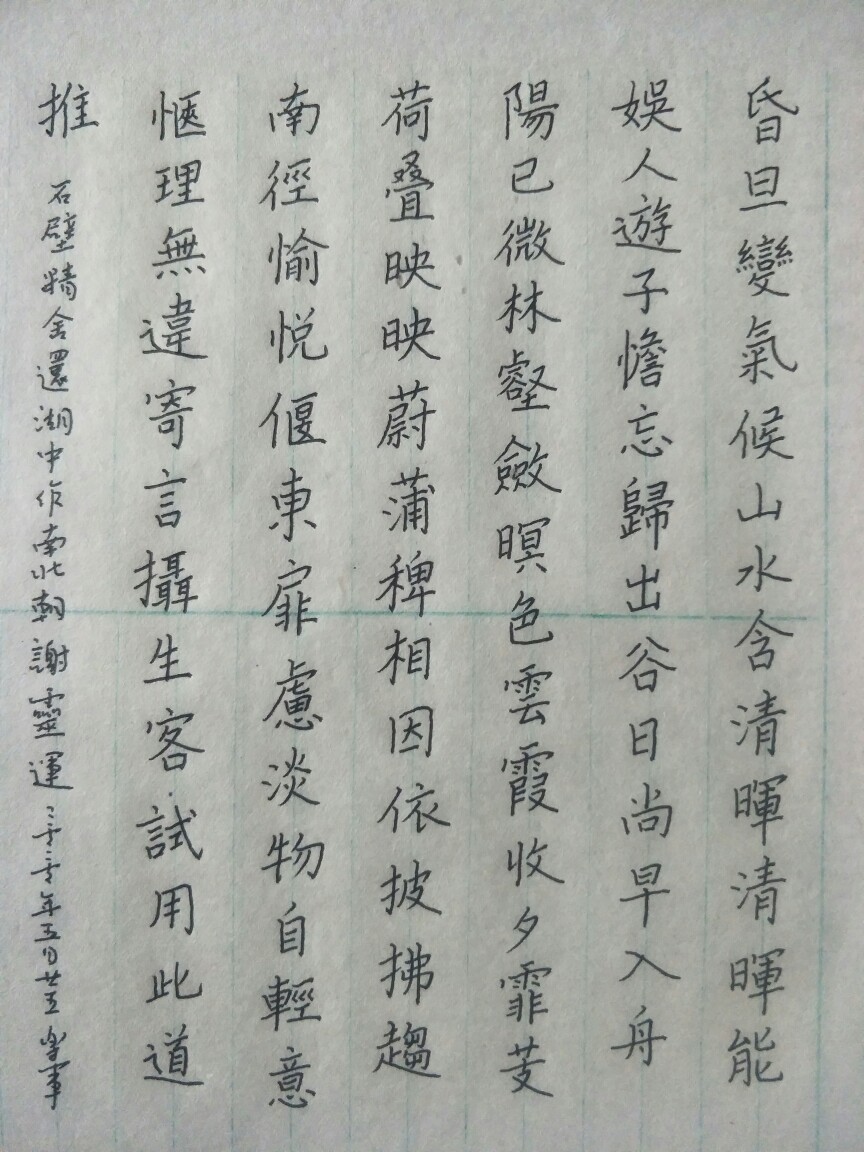 昏旦變氣候山水含清暉清暉能
娛人遊子憺忘歸出谷日尚早入舟
陽已微林壑斂暝色雲霞收夕霏芰
荷叠映映蔚蒲稗相因依披拂趨
南徑愉悅偃東扉慮淡物自輕意
愜理無違寄言攝生客試用此道
推
石壁精舍還湖中作南北朝謝靈運二零二零年五月廿五